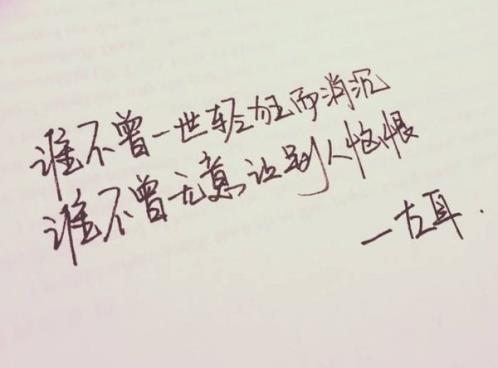 谁不曾一世轻狂而消沉
谁不曾无意让别人怨恨
—左耳.